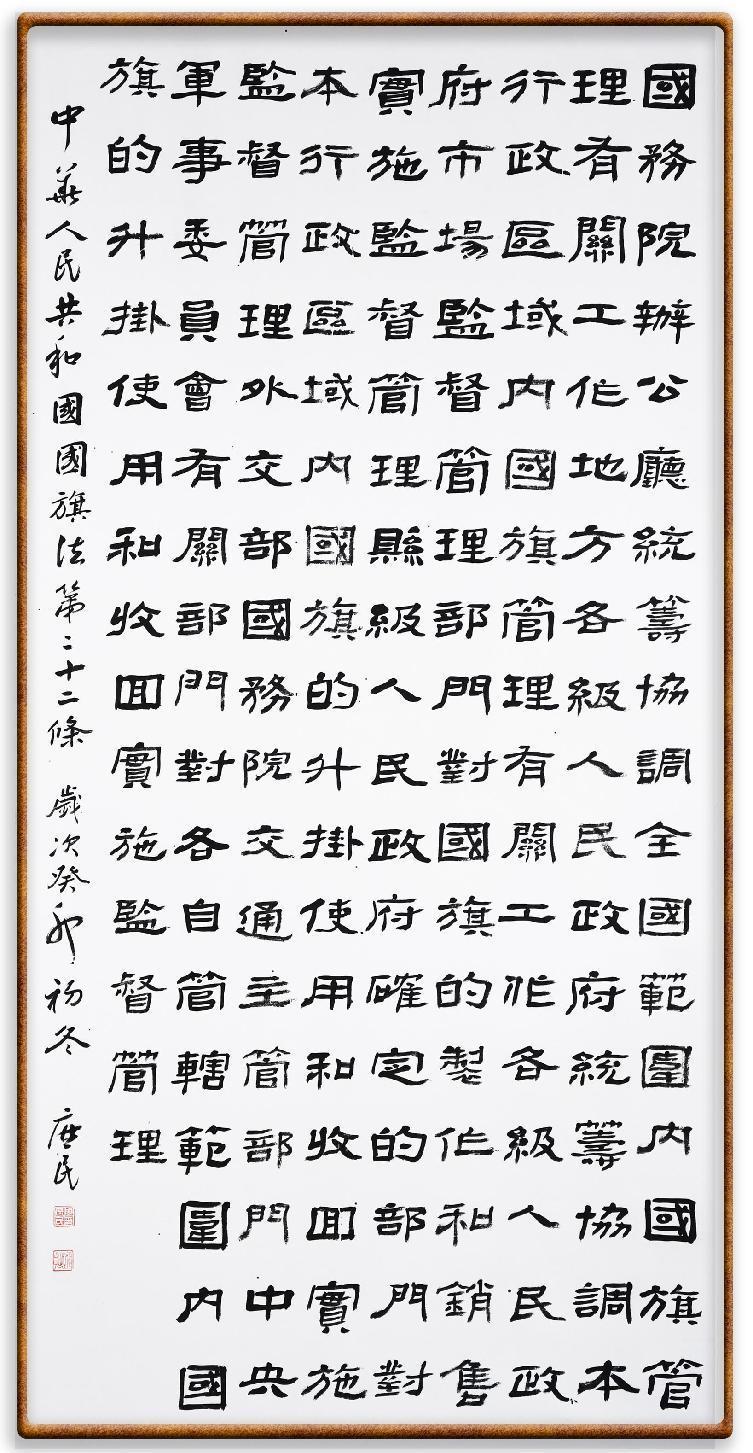 國務院辦公廳統籌協調全國範圍內國旗管
理有關工作地方各級人民政府統籌協調本
行政區域內國旗管理有關工作各級人民政
府市場監督管理部門對國旗的製作和銷售
實施監督管理縣級人民政府確定的部門對
本行政區域內國旗的升掛使用和收回實施
監督管理外交部國務院交通主管部門中央
軍事委員會有關部門對各自管轄範圍內國
旗的升掛使用和收回實施監督管理
中華人民共和國國旗法第二十二條 歲次癸卯初冬 庶民